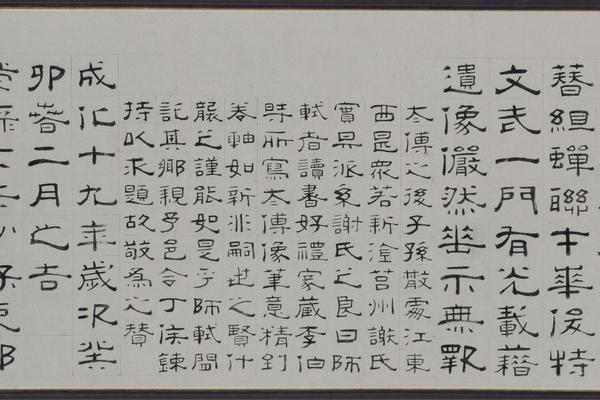 簪組蟬聯才華俊特
文武一門有光載籍
遺像儼然垂示無斁
太傅之後子孫散處江東
西是眾若新淦莒州謝氏
實昇派系謝氏之良曰師
軾者讀書好禮家藏李伯
時所寫太傅像筆意精到
卷軸如新非嗣世之賢什
襲之謹能如是乎師軾閭
託其鄉親予邑令丁侯鍊
持以求題故敬為之贊
成化十九年歲次癸
卯春二月之吉